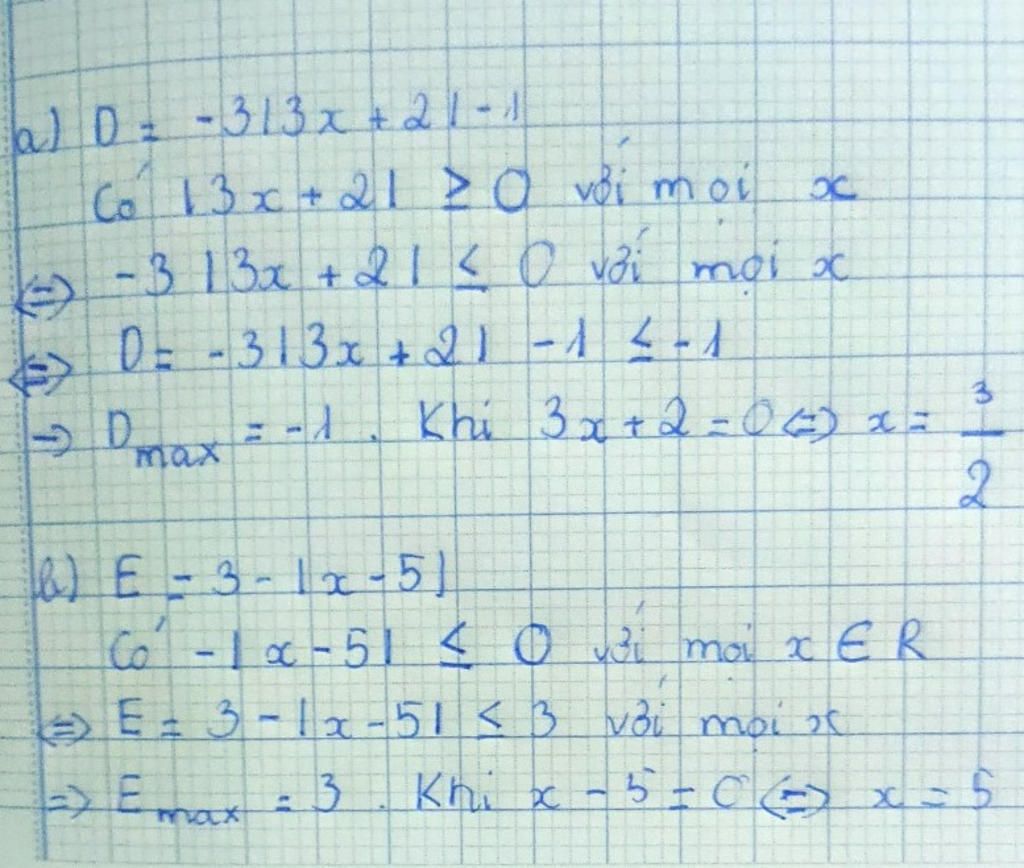 a) D = -3|3x + 2| - 1
Có |3x + 2| ≥ 0 với mọi x
⇔ -3|3x + 2| ≤ 0 với mọi x
⇔ D = -3|3x + 2| - 1 ≤ -1
→ Dmax = -1. Khi 3x + 2 = 0 ⇔ x = 3/2
b) E = 3 - |x - 5|
Có -|x - 5| ≤ 0 với mọi x ∈ R
⇔ E = 3 - |x - 5| ≤ 3 với mọi x
=> Emax = 3. Khi x - 5 = 0 ⇔ x = 5